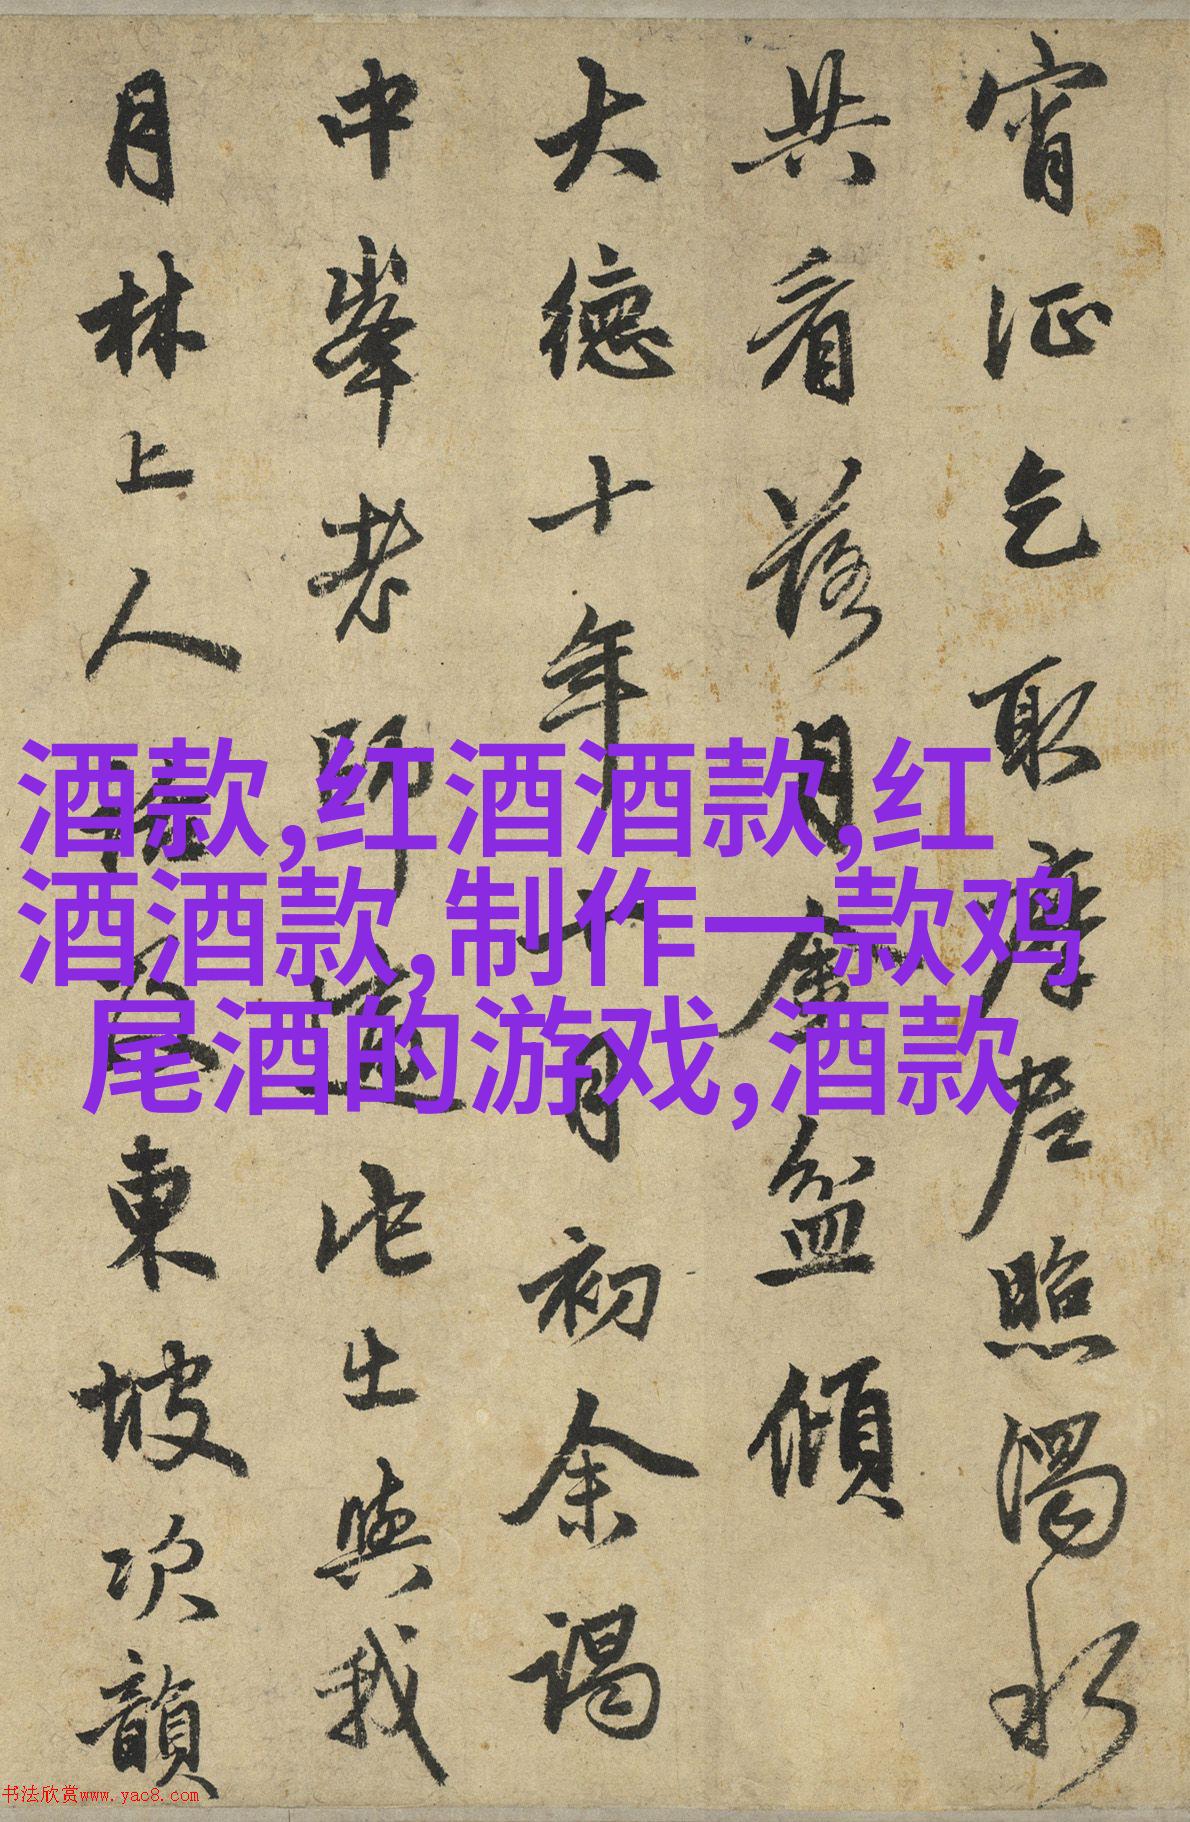 宵征乞取摩尼照濁水
共看落月金盆傾
大德十年月初余謁
中峯老師出與我
月林上人東坡次韻
酒款,红酒酒款,红
酒酒款,制作一款鸡
尾酒的游戏,酒款
书法欣赏www.yac8.com